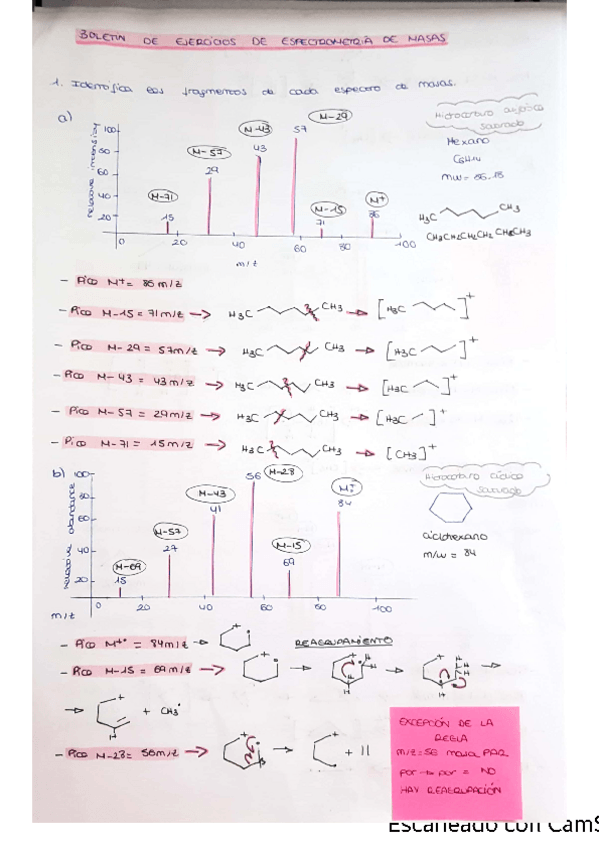 BOLETIN DE EJERCICIOS DE ESPECTROMETRIA DE MASAS
1. Identifica los fragmentos de cada espectro de masas.
a)
Hidrocarburo alifático
saturado
Hexano
C6H14
mw = 86.18
H3C CH3
CH3CH2CH2CH2CH2CH3
relative intensity
100
80
60
40
20
0 20 40 60 80 100
m/z
M-71
15
M-57
29
M-43
43
M-29
57
M-15
71
M+
86
- Pico M+ = 86 m/z
- Pico M-15 = 71 m/z → H3C CH3 → [H3C ]+
- Pico M-29 = 57 m/z → H3C CH3 → [H3C ]+
- Pico M-43 = 43 m/z → H3C CH3 → [H3C ]+
- Pico M-57 = 29 m/z → H3C CH3 → [H3C ]+
- Pico M-71 = 15 m/z → H3C CH3 → [CH3]+
b)
Hidrocarburo cíclico
saturado
ciclohexano
m/w = 84
relative abundance
100
80
60
40
20
0 20 40 60 80 100
m/z
M-69
15
M-57
27
M-43
41
56 M-28
M-15
69
84
- Pico M+• = 84 m/z → REAGRUPAMIENTO
- Pico M-15 = 69 m/z → → →
→ + CH3•
- Pico M-28 = 56 m/z → → + ||
EXCEPCIÓN DE LA
REGLA
m/z = 56 masa PAR
par → par = NO
HAY REAGRUPACIÓN
Escaneado con CamS